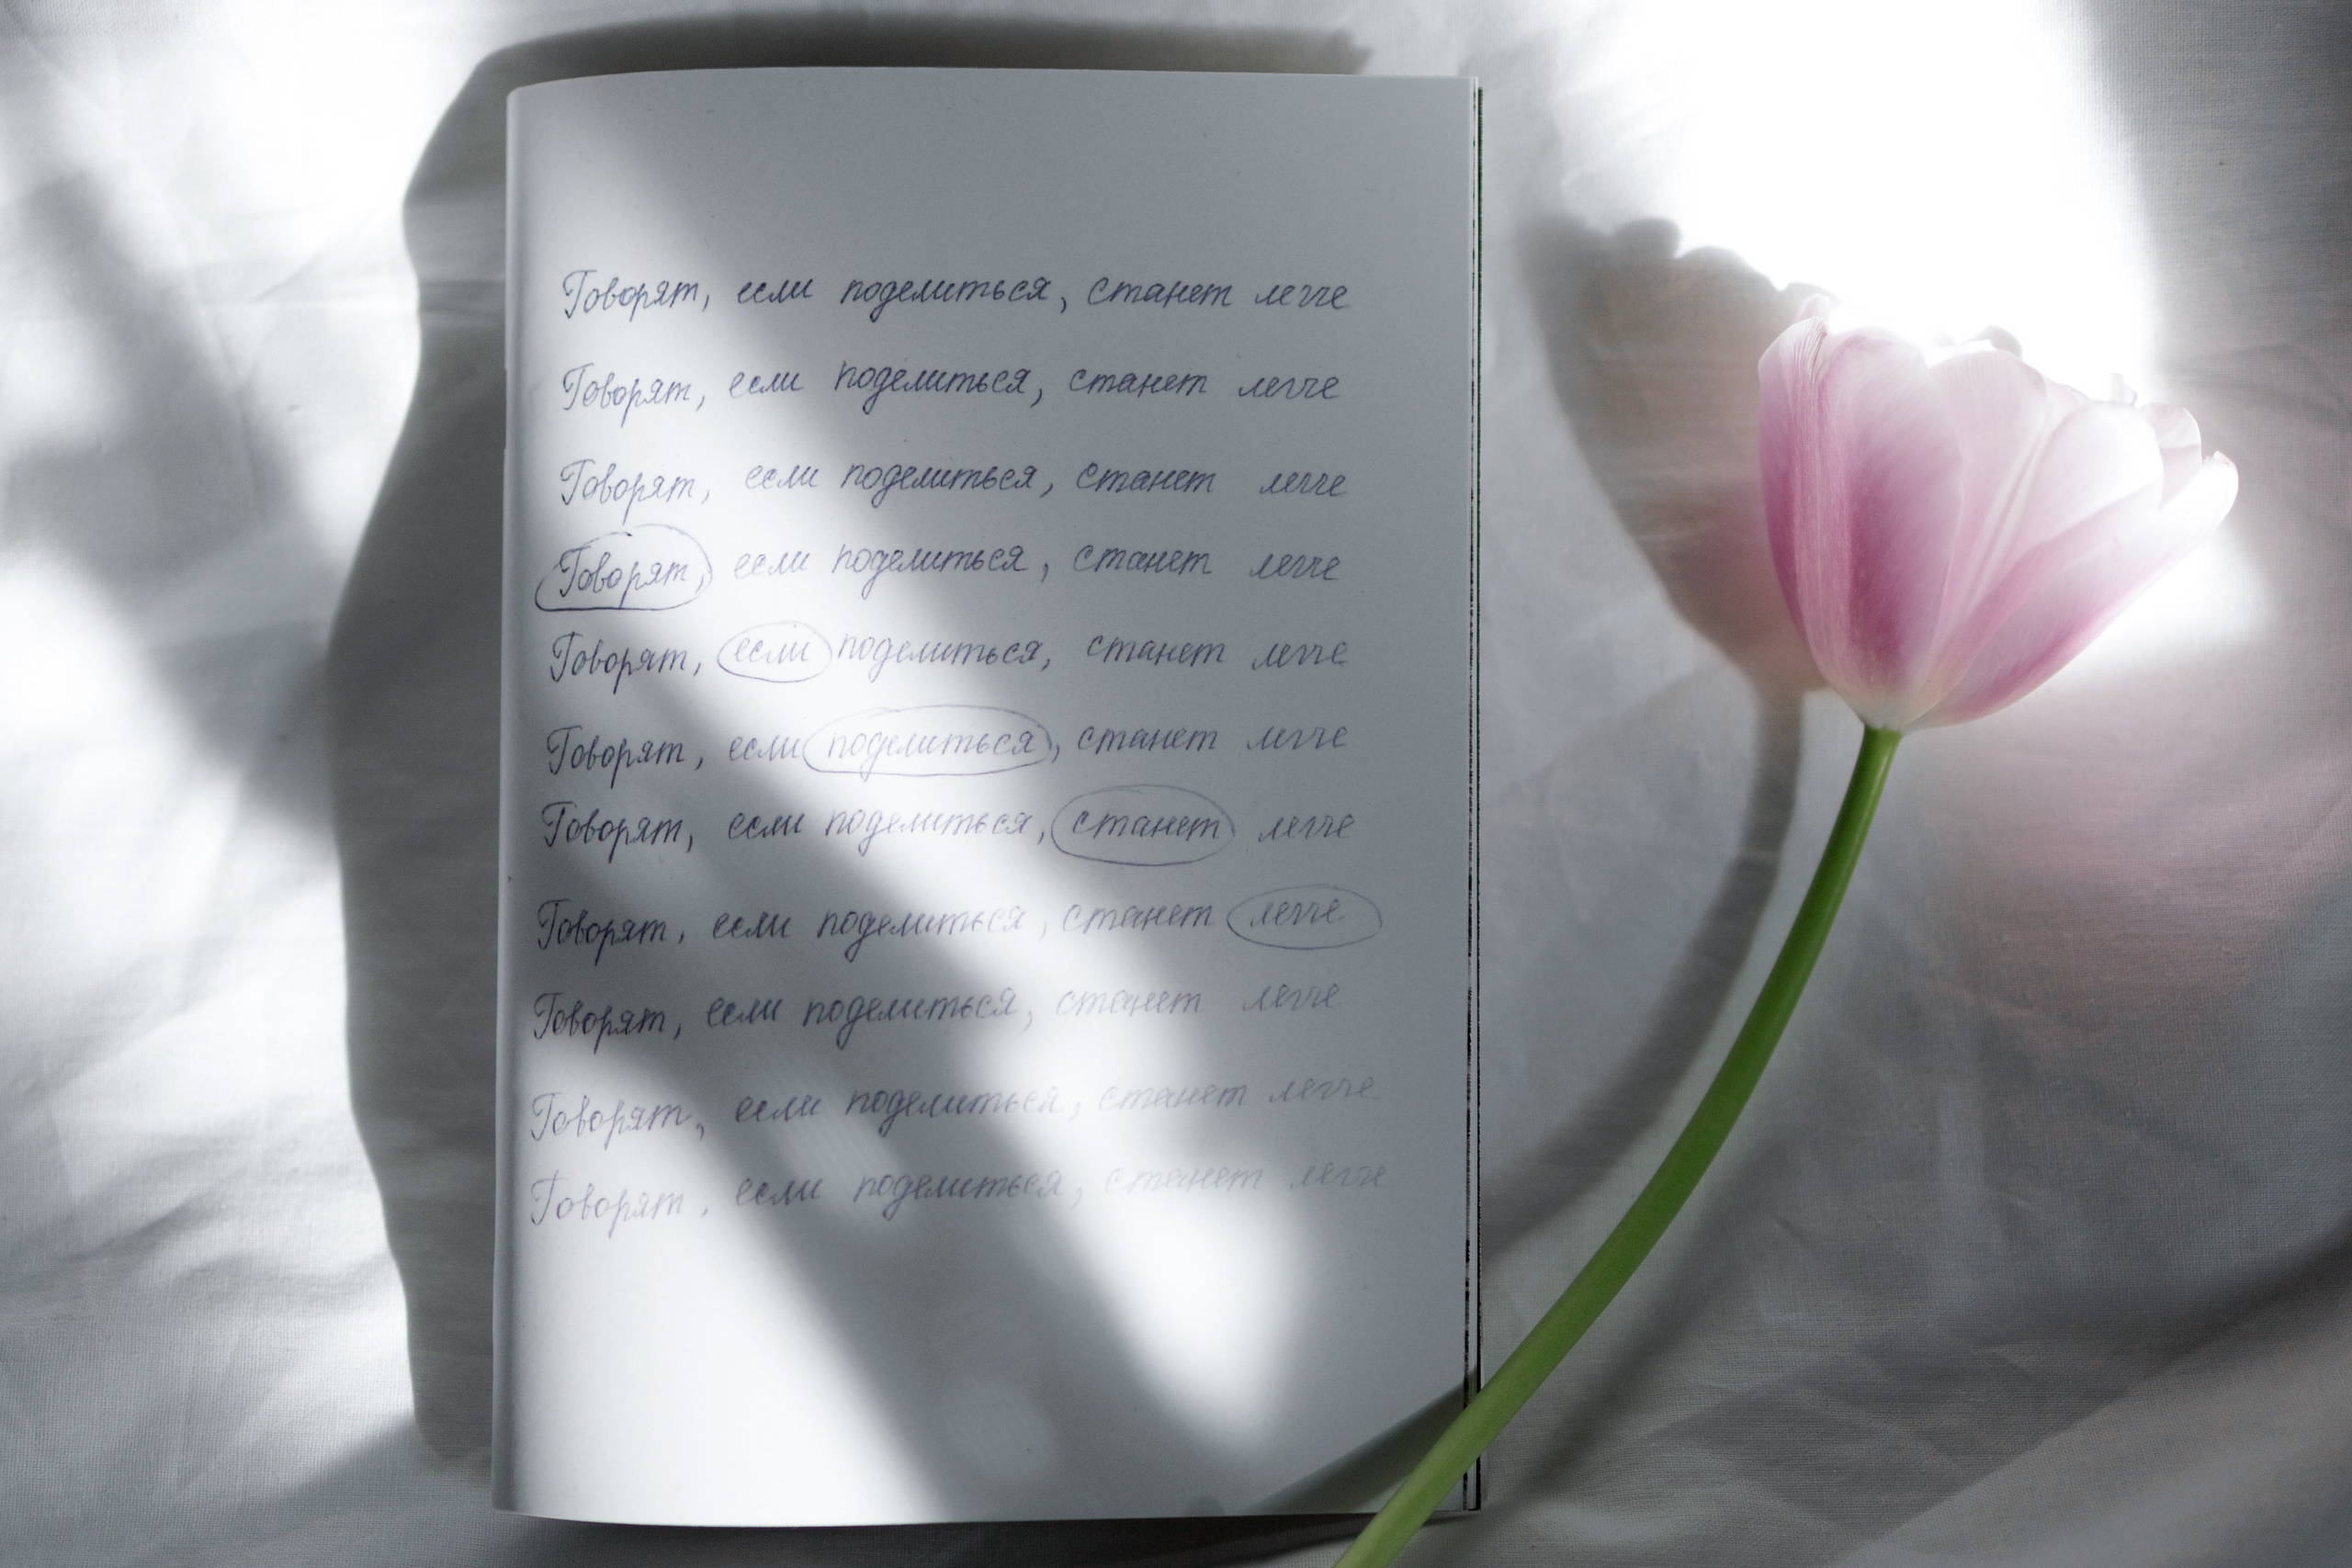 Говорят, если поделиться, станет легче
Говорят, если поделиться, станет легче
Говорят, если поделиться, станет легче
Говорят, если поделиться, станет легче
Говорят, если поделиться, станет легче
Говорят, если поделиться, станет легче
Говорят, если поделиться, станет легче
Говорят, если поделиться, станет легче
Говорят, если поделиться, станет легче
Говорят, если поделиться, станет легче
Говорят, если поделиться, станет легче